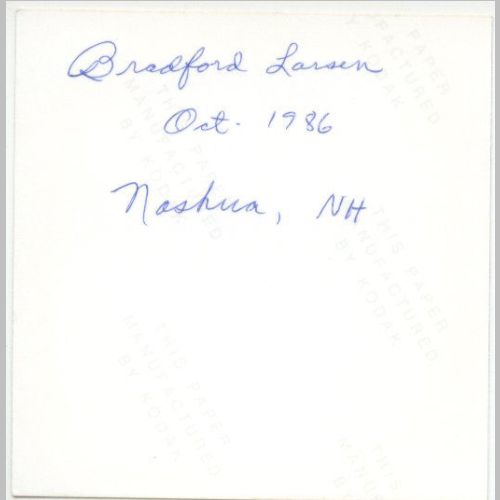 Bradford Larsen
Oct. 1986
Nashua, NH
THIS PAPER
MANUFACTURED
BY KODAK
THIS PAPER
MANUFACTURED
BY KODAK
THIS PAPER
MANUFACTURED
BY KODAK
THIS PAPER
MANUFACTURED
BY KODAK
THIS
MANUFA